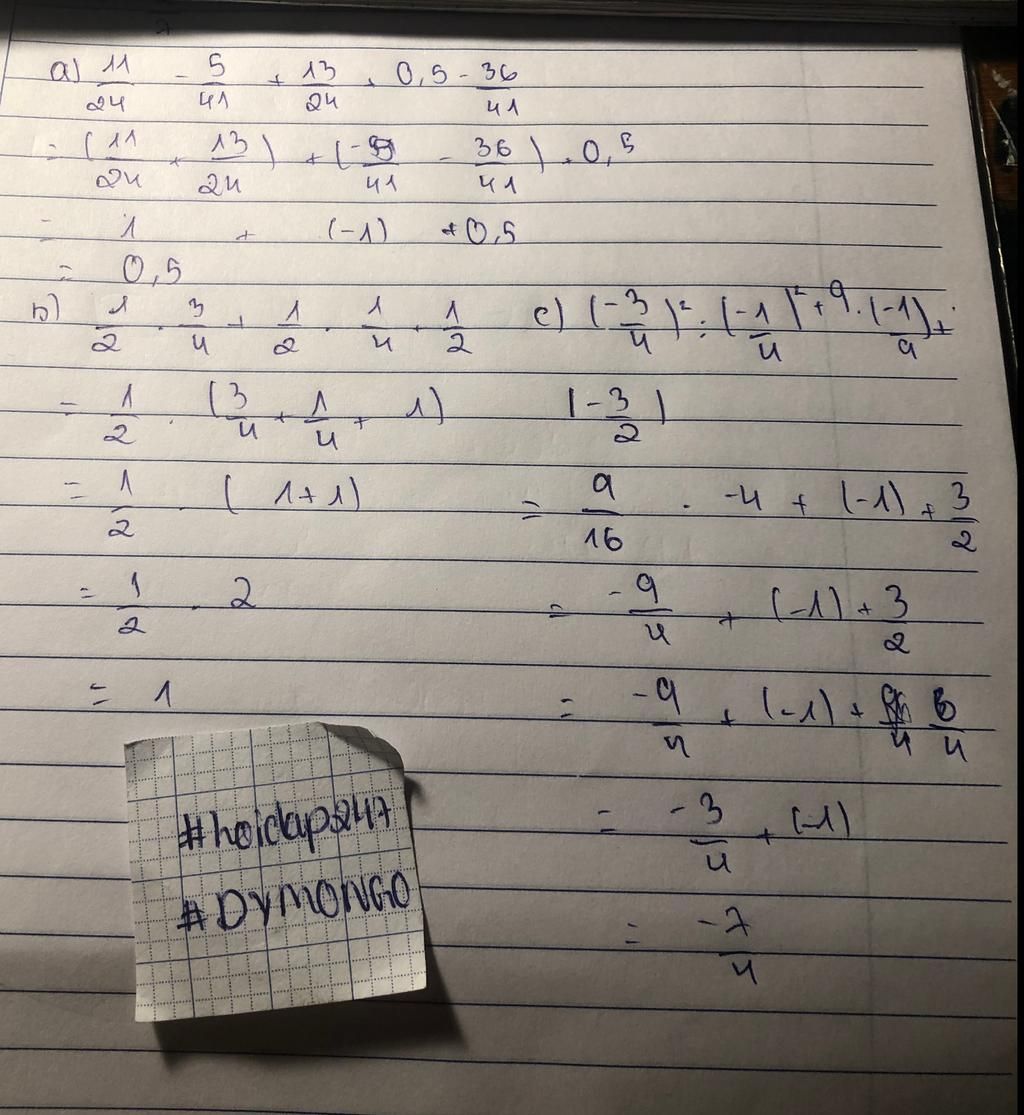 a) 11/24 - 5/41 + 13/24 + 0,5 - 36/41
= (11/24 + 13/24) + (-5/41 - 36/41) + 0,5
= 1 + (-1) + 0,5
= 0,5
b) 1/2 . 3/4 + 1/2 . 1/4 + 1/2
= 1/2 . (3/4 + 1/4 + 1)
= 1/2 . (1+1)
= 1/2 . 2
= 1
c) (-3/4)² : (-1/4)² + 9 . (-1/9) +
|-3/2|
= 9/16 . -4 + (-1) + 3/2
= -9/4 + (-1) + 3/2
= -9/4 + (-1) + 6/4
= -3/4 + (-1)
= -7/4
#hoidap247
#DYMONGO